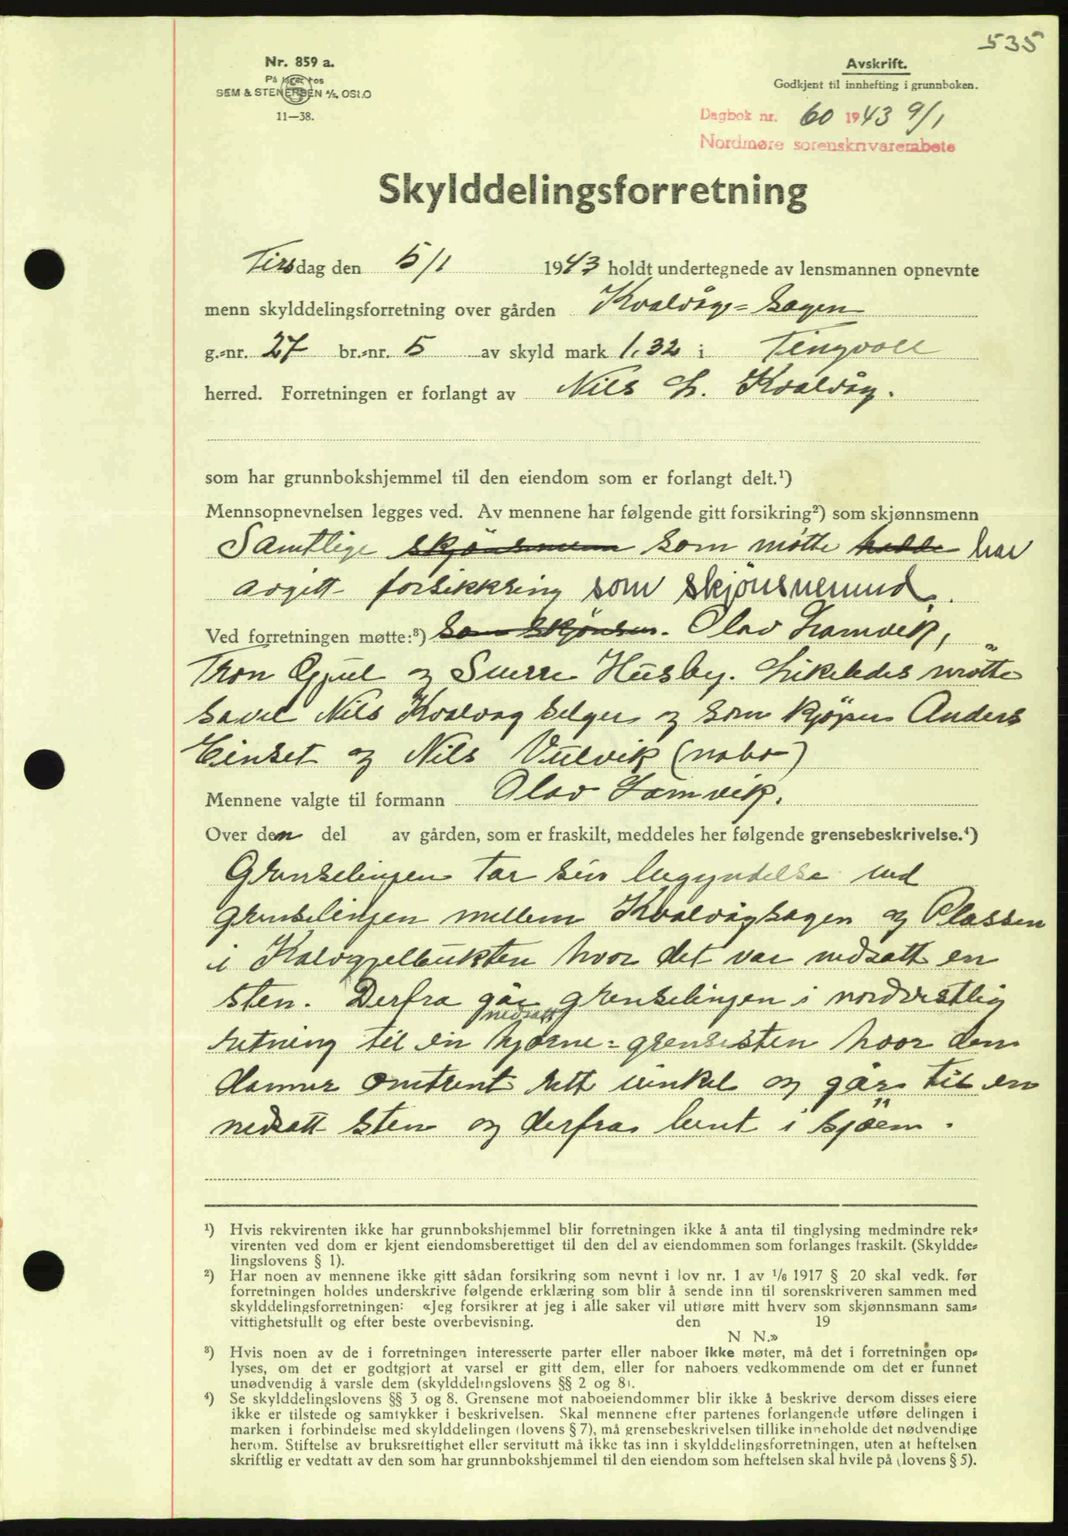 535
Nr. 859 a.
På lager hos
SEM & STENERSEN A/S, OSLO
11—38.
Avskrift.
Godkjent til innhefting i grunnboken.
Dagbok nr. 60 1943 9/1
Nordmøre sorenskrivarembete
Skylddelingsforretning
Tirsdag den 5/1 1943 holdt undertegnede av lensmannen opnevnte
menn skylddelingsforretning over gården Kvalvåg=hagen
g.=nr. 27 br.=nr. 5 av skyld mark 1,32 i Tingvoll
herred. Forretningen er forlangt av Nils L. Kvalvåg.
som har grunnbokshjemmel til den eiendom som er forlangt delt.¹)
Mennsopnevnelsen legges ved. Av mennene har følgende gitt forsikring²) som skjønnsmenn
Samtlige skjönsmenn som møtte hadde har
avgitt forsikkring som skjönsnemnd.
Ved forretningen møtte:³) Som skjönsm. Olav Lamvik,
Tron Gjul og Sverre Husby. Likeledes møtte
Nils Kvalvag selger og som kjøper Anders
Einset og Nils Vulvik (nabo)
Mennene valgte til formann Olav Lamvik.
Over den del av gården, som er fraskilt, meddeles her følgende grensebeskrivelse.⁴)
Grenselinjen tar sin begyndelse ved
grenselinjen mellem Kvalvåghagen og Plassen
i Kalvgjelbukten hvor det var nedsatt en
sten. Derfra går grenselinjen i nordvestlig
retning til en nedsatt hjørne=grensesten hvor den
danner omtrent rett vinkel og går til en
nedsatt sten og derfra bent i sjöen.
¹) Hvis rekvirenten ikke har grunnbokshjemmel blir forretningen ikke å anta til tinglysing medmindre rek=
virenten ved dom er kjent eiendomsberettiget til den del av eiendommen som forlanges fraskilt. (Skyldde=
lingslovens § 1).
²) Har noen av mennene ikke gitt sådan forsikring som nevnt i lov nr. 1 av 1/6 1917 § 20 skal vedk. før
forretningen holdes underskrive følgende erklæring som blir å sende inn til sorenskriveren sammen med
skylddelingsforretningen: «Jeg forsikrer at jeg i alle saker vil utføre mitt hverv som skjønnsmann sam=
vittighetsfullt og efter beste overbevisning. den 19
N N.»
³) Hvis noen av de i forretningen interesserte parter eller naboer ikke møter, må det i forretningen op=
lyses, om det er godtgjort at varsel er gitt dem, eller for naboers vedkommende om det er funnet
unødvendig å varsle dem (skylddelingslovens §§ 2 og 8).
⁴) Se skylddelingslovens §§ 3 og 8. Grensene mot naboeiendommer blir ikke å beskrive dersom disses eiere
ikke er tilstede og samtykker i beskrivelsen. Skal mennene efter partenes forlangende utføre delingen i
marken i forbindelse med skylddelingen (lovens § 7), må grensebeskrivelsen tillike inneholde det nødvendige
herom. Stiftelse av bruksrettighet eller servitutt må ikke tas inn i skylddelingsforretningen, uten at heftelsen
skriftlig er vedtatt av den som har grunnbokshjemmel til den eiendom som heftelsen skal hvile på (lovens § 5).